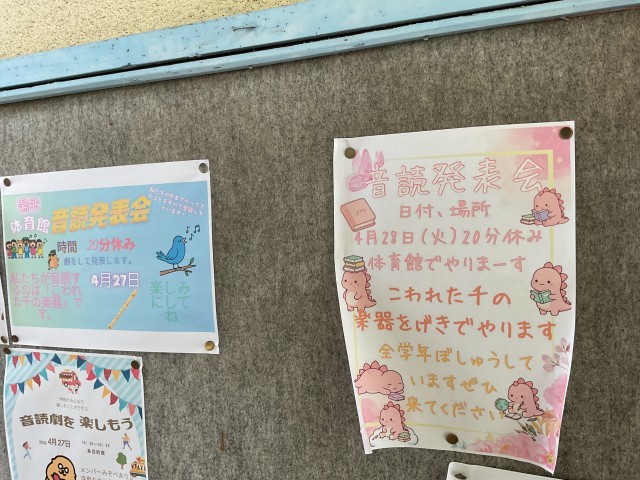 場所
体育館
音読発表会
時間
20分休み
劇をして発表します。
私たちが音読す
るのは「こわれ
た千の楽器」で
す。
4月27日
みて
ししね
楽に
音読劇を 楽しもう
4月27日
メンバーみそべあり
音読発表会
日付、場所
4月28日(火)20分休み
体育館でやりまーす
こわれた千の
楽器をげきでやります
全学年ぼしゅうして
いますぜひ
来てください